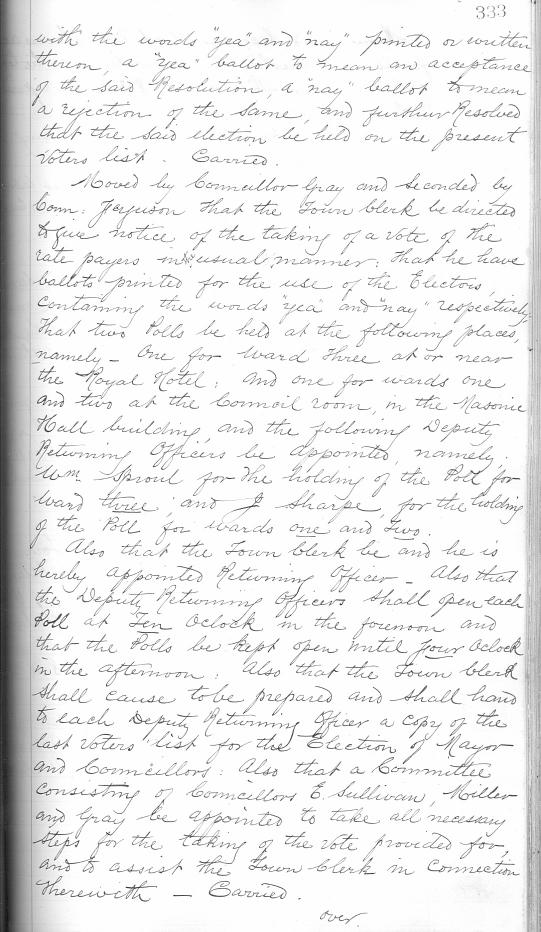 333
with the words "yea" and "nay" printed or written
thereon, a "yea" ballot to mean an acceptance
of the said Resolution, a "nay" ballot to mean
a rejection of the same, and further Resolved
that the said election be held on the present
Voters list. Carried.
Moved by Councillor Gray and seconded by
Coun: Ferguson that the Town Clerk be directed
to give notice of the taking of a Vote of the
rate payers in the usual manner: That he have
ballots printed for the use of the Electors,
containing the words "yea" and "nay" respectively,
that two Polls be held at the following places,
namely - One for Ward Three at or near
the Royal Hotel; and one for wards one
and two at the Council room, in the Masonic
Hall building, and the following Deputy
Returning Officers be appointed, namely:
Wm. Sproul for the holding of the Poll for
ward three, and J Sharpe, for the holding
of the Poll for wards one and Two.
Also that the Town Clerk be and he is
hereby appointed Returning Officer - Also that
the Deputy Returning Officers shall open each
Poll at Ten Oclock in the forenoon and
that the Polls be kept open until four Oclock
in the afternoon: Also that the Town Clerk
shall cause to be prepared and shall hand
to each Deputy Returning Officer a copy of the
last voters' list for the Election of Mayor
and Councillors: Also that a Committee
consisting of Councillors E. Sullivan, Miller
and Gray be appointed to take all necessary
steps for the taking of the vote provided for,
and to assist the Town Clerk in connection
therewith - Carried.
over.